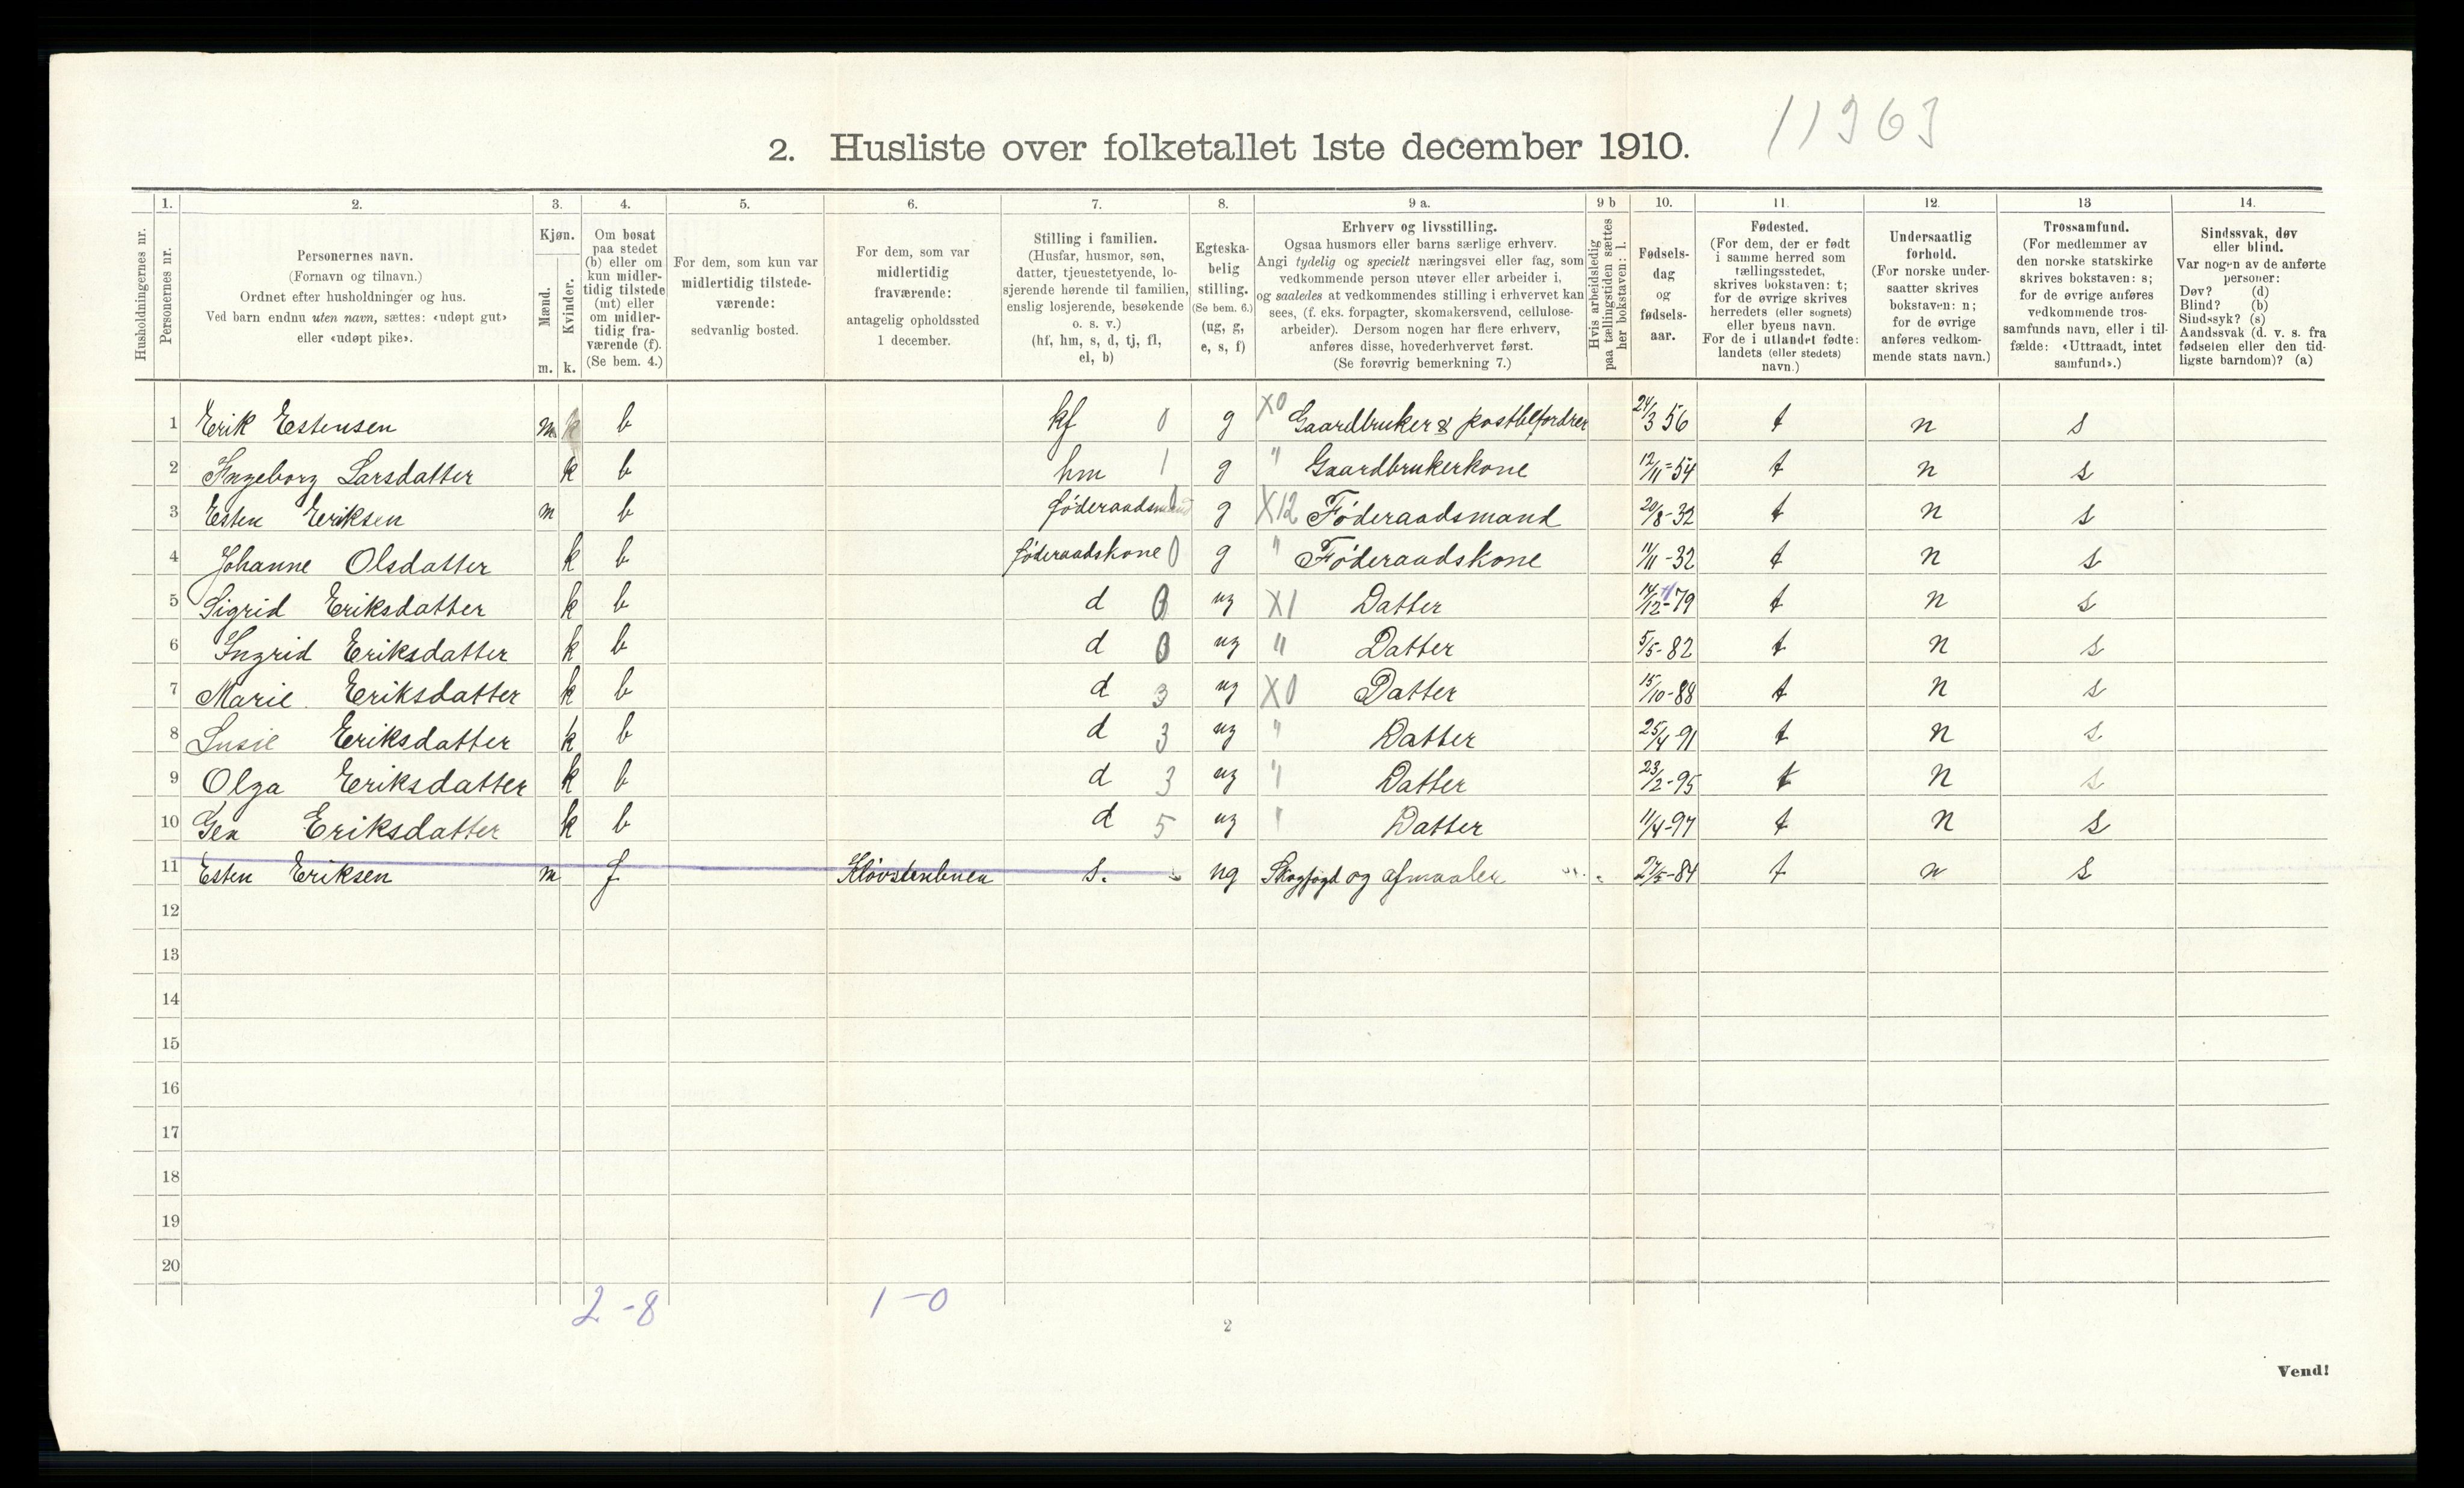 11363
2. Husliste over folketallet 1ste december 1910.
1. 2. 3. 4. 5. 6. 7. 8. 9 a. 9 b 10. 11. 12. 13 14.
Husholdningernes nr.
Personernes nr.
Personernes navn.
(Fornavn og tilnavn.)
Ordnet efter husholdninger og hus.
Ved barn endnu uten navn, sættes: «udøpt gut»
eller «udøpt pike».
Kjøn.
Mænd.
Kvinder.
m. k.
Om bosat
paa stedet
(b) eller om
kun midler-
tidig tilstede
(mt) eller
om midler-
tidig fra-
værende (f).
(Se bem. 4.)
For dem, som kun var
midlertidig tilstede-
værende:
sedvanlig bosted.
For dem, som var
midlertidig
fraværende:
antagelig opholdssted
1 december.
Stilling i familien.
(Husfar, husmor, søn,
datter, tjenestetyende, lo-
sjerende hørende til familien,
enslig losjerende, besøkende
o. s. v.)
(hf, hm, s, d, tj, fl,
el, b)
Egteska-
belig
stilling.
(Se bem. 6.)
(ug, g,
e, s, f)
Erhverv og livsstilling.
Ogsaa husmors eller barns særlige erhverv.
Angi tydelig og specielt næringsvei eller fag, som
vedkommende person utøver eller arbeider i,
og saaledes at vedkommendes stilling i erhvervet kan
sees, (f. eks. forpagter, skomakersvend, cellulose-
arbeider). Dersom nogen har flere erhverv,
anføres disse, hovederhvervet først.
(Se forøvrig bemerkning 7.)
Hvis arbeidsledig
paa tællingstiden sættes
her bokstaven: l.
Fødsels-
dag
og
fødsels-
aar.
Fødested.
(For dem, der er født
i samme herred som
tællingsstedet,
skrives bokstaven: t;
for de øvrige skrives
herredets (eller sognets)
eller byens navn.
For de i utlandet fødte:
landets (eller stedets)
navn.)
Undersaatlig
forhold.
(For norske under-
saatter skrives
bokstaven: n;
for de øvrige
anføres vedkom-
mende stats navn.)
Trossamfund.
(For medlemmer av
den norske statskirke
skrives bokstaven: s;
for de øvrige anføres
vedkommende tros-
samfunds navn, eller i til-
fælde: «Uttraadt, intet
samfund».)
Sindssvak, døv
eller blind.
Var nogen av de anførte
personer:
Døv? (d)
Blind? (b)
Sindssyk? (s)
Aandssvak (d. v. s. fra
fødselen eller den tid-
ligste barndom)? (a)
1 Erik Estensen m k b hf 0 g X0 Gaardbruker & postbefordrer 24/3 56 t n s
2 Ingeborg Larsdatter k b hm 1 g " Gaardbrukerkone 12/11-54 t n s
3 Esten Eriksen m b føderaadsmand 0 g X12 Føderaadsmand 20/8-32 t n s
4 Johanne Olsdatter k b føderaadskone 0 g " Føderaadskone 11/11-32 t n s
5 Sigrid Eriksdatter k b d 0 ug X1 Datter 14/12-79 t n s
6 Ingrid Eriksdatter k b d 0 ug " Datter 5/5-82 t n s
7 Marie Eriksdatter k b d 3 ug X0 Datter 15/10-88 t n s
8 Susie Eriksdatter k b d 3 ug " Datter 25/4 91 t n s
9 Olga Eriksdatter k b d 3 ug " Datter 23/2-95 t n s
10 Gea Eriksdatter k b d 5 ug " Datter 11/4-97 t n s
11 Esten Eriksen m f Kløvstenbuen s. ug Skogfogd og afmaaler 27/5-84 t n s
12
13
14
15
16
17
18
19
20
2-8 1-0
2
Vend!